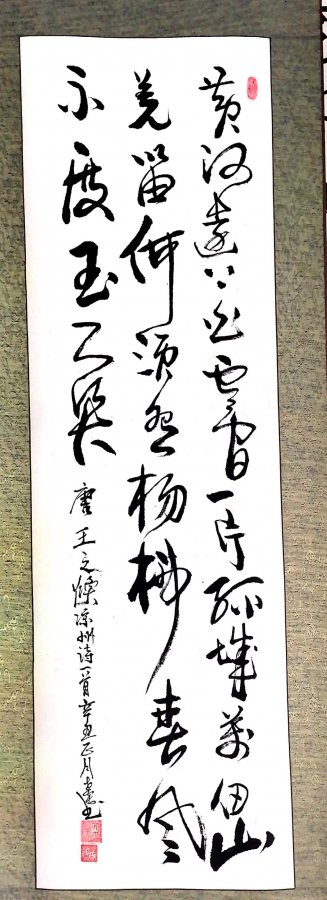 黄河遠上白雲間一片孤城萬仞山
羌笛何須怨楊柳春風
不度玉门关
唐王之涣凉州诗一首辛丑正月书